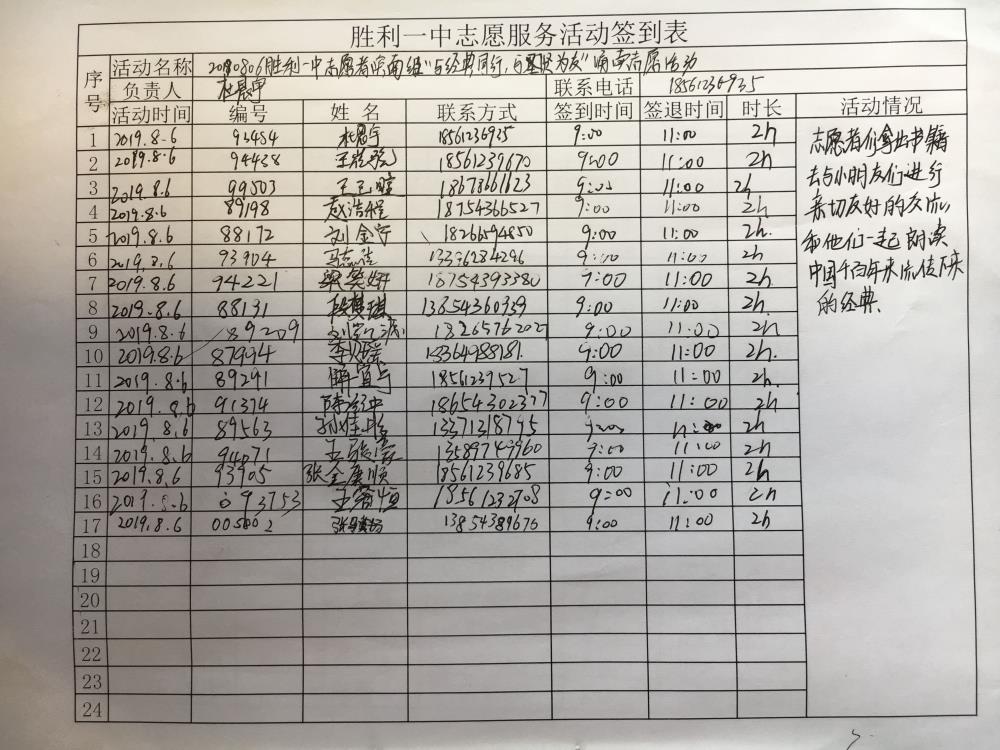 胜利一中志愿服务活动签到表
序号 活动名称 20190806胜利一中志愿者滨南组"与经典同行,与圣贤为友"诵读志愿活动
负责人 杜晨宁 联系电话 18561236935
活动时间 编号 姓名 联系方式 签到时间 签退时间 时长 活动情况
1 2019.8.6 93484 18561236935 9:00 11:00 2h
2 2019.8.6 94438 18561239670 9:00 11:00 2h
3 2019.8.6 99503 18678661623 9:00 11:00 2h
4 2019.8.6 89198 赵浩程 18754366527 9:00 11:00 2h
5 2019.8.6 88172 刘金宁 18266594850 9:00 11:00 2h.
6 2019.8.6 93904 13336284296 9:00 11:00 2h
7 2019.8.6 94221 梁笑妍 18754393380 9:00 11:00 2h
8 2019.8.6 88131 段梦琪 13854360339 9:00 11:00 2h
9 2019.8.6 89209 9:00 11:00 2h
10 2019.8.6 87994 13364988181. 9:00 11:00 2h.
11 2019.8.6 89291 解宜宁 18561239527 9:00 11:00 2h.
12 2019.8.6 91374 18654302377 9:00 11:00 2h
13 2019.8.6 89563 13371318795 9:00 2h
14 2019.8.6 94071 13589749960 9:00 11:00 2h
15 2019.8.6 93905 张金康顺 18561239685 9:00 11:00 2h
16 2019.8.6 093753 18561232708 9:00 11:00 2h
17 2019.8.6 13854389670 9:00 11:00 2h
18
19
20
21
22
23
24
志愿者们拿出书籍
去与小朋友们进行
亲切友好的交流,
和他们一起朗读
中国千百年来流传下来
的经典